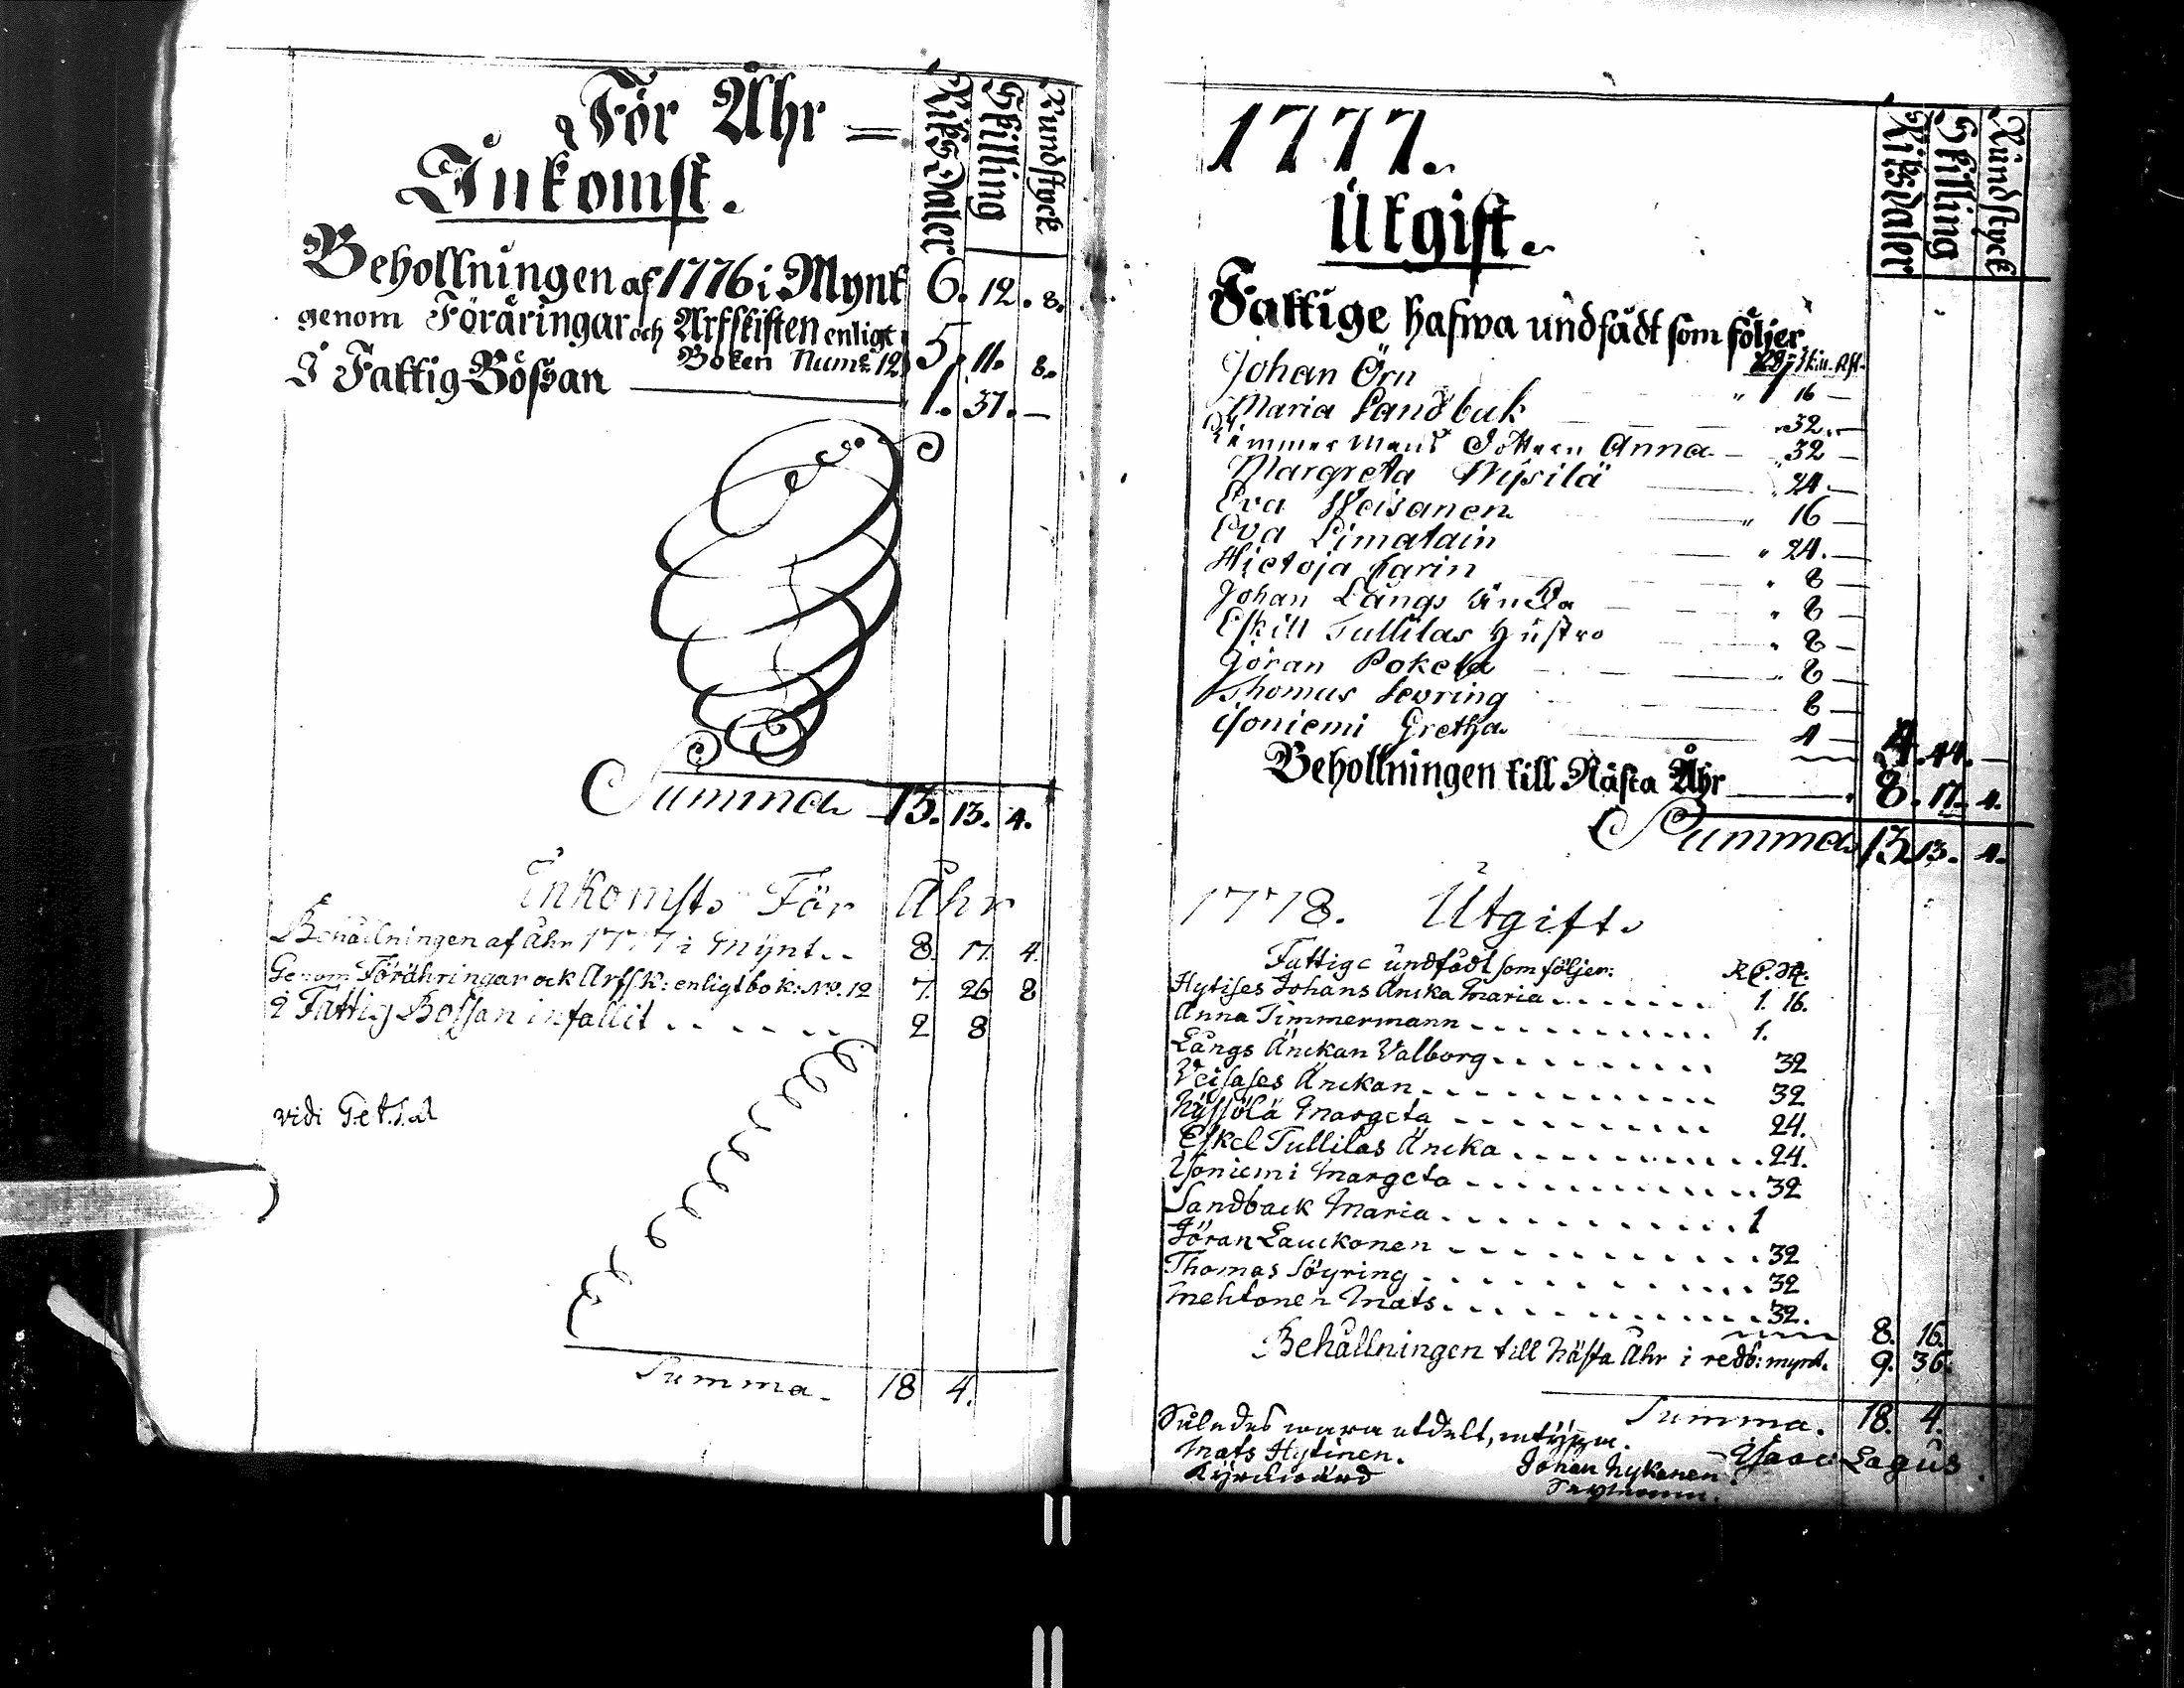 För Åhr =
Inkomst.
RiksDaler
Skilling
Rundstyck
Behollningen af 1776 i Mynt 6. 12. 8.
genom Föräringar och Arfskiften enligt
Boken Num: 12 5. 11. 8.
I Fattig Bössan 1. 37. —
Summa 13. 13. 4.
Inkomst. För Åhr
Behållningen af Åhr 1777 i Mynt.. 8. 17. 4.
Genom Föröhringar ock Arfsk: enligt bok: No. 12 7. 26 8
i Fattig Bossan infallit 2 8
vidi
Summa. 18 4.
1777.
Utgift.
RiksDaler
Skilling
Rundstyck
Fattige hafwa undfådt som följer.
Rd. Skill. Rst.
Johan Örn " 16 —
Maria Sandbak " 32. —
Timmermans Dottren Anna — " 32 —
Margreta Nysilä " 24. —
Eva Weisanen " 16 —
Eva Limatain " 24. —
Hietoja Karin " 8 —
Johan Långs änka " 8 —
Eskill Tullilas Hustro " 8 —
Göran Pokela " 8 —
Thomas Sevring 8 —
Isoniemi Gretha 4 —
4. 44. —
Behollningen till Nästa Åhr 8. 17. 4.
Summa 13. 13. 4.
1778. Utgift.
Fattige undfådt som följer:
Hytises Johans Äncka Maria 1. 16.
Anna Timmermann 1.
Långs Änckan Valborg 32
Veisases Änckan 32
Nyssölä Margeta 24.
Eskel Tullilas Äncka 24.
Isoniemi Margeta 32
Sandback Maria 1
Jöran Lauckonen 32
Thomas Söyring 32
Mehtonen Mats 32.
8. 16.
Behållningen till Nästa Åhr i redb: mynt. 9. 36.
Summa. 18. 4.
Således wara utdelt,
Mats Hytinen. Johan Nykänen Isaac Lagus
Kyrckowärd